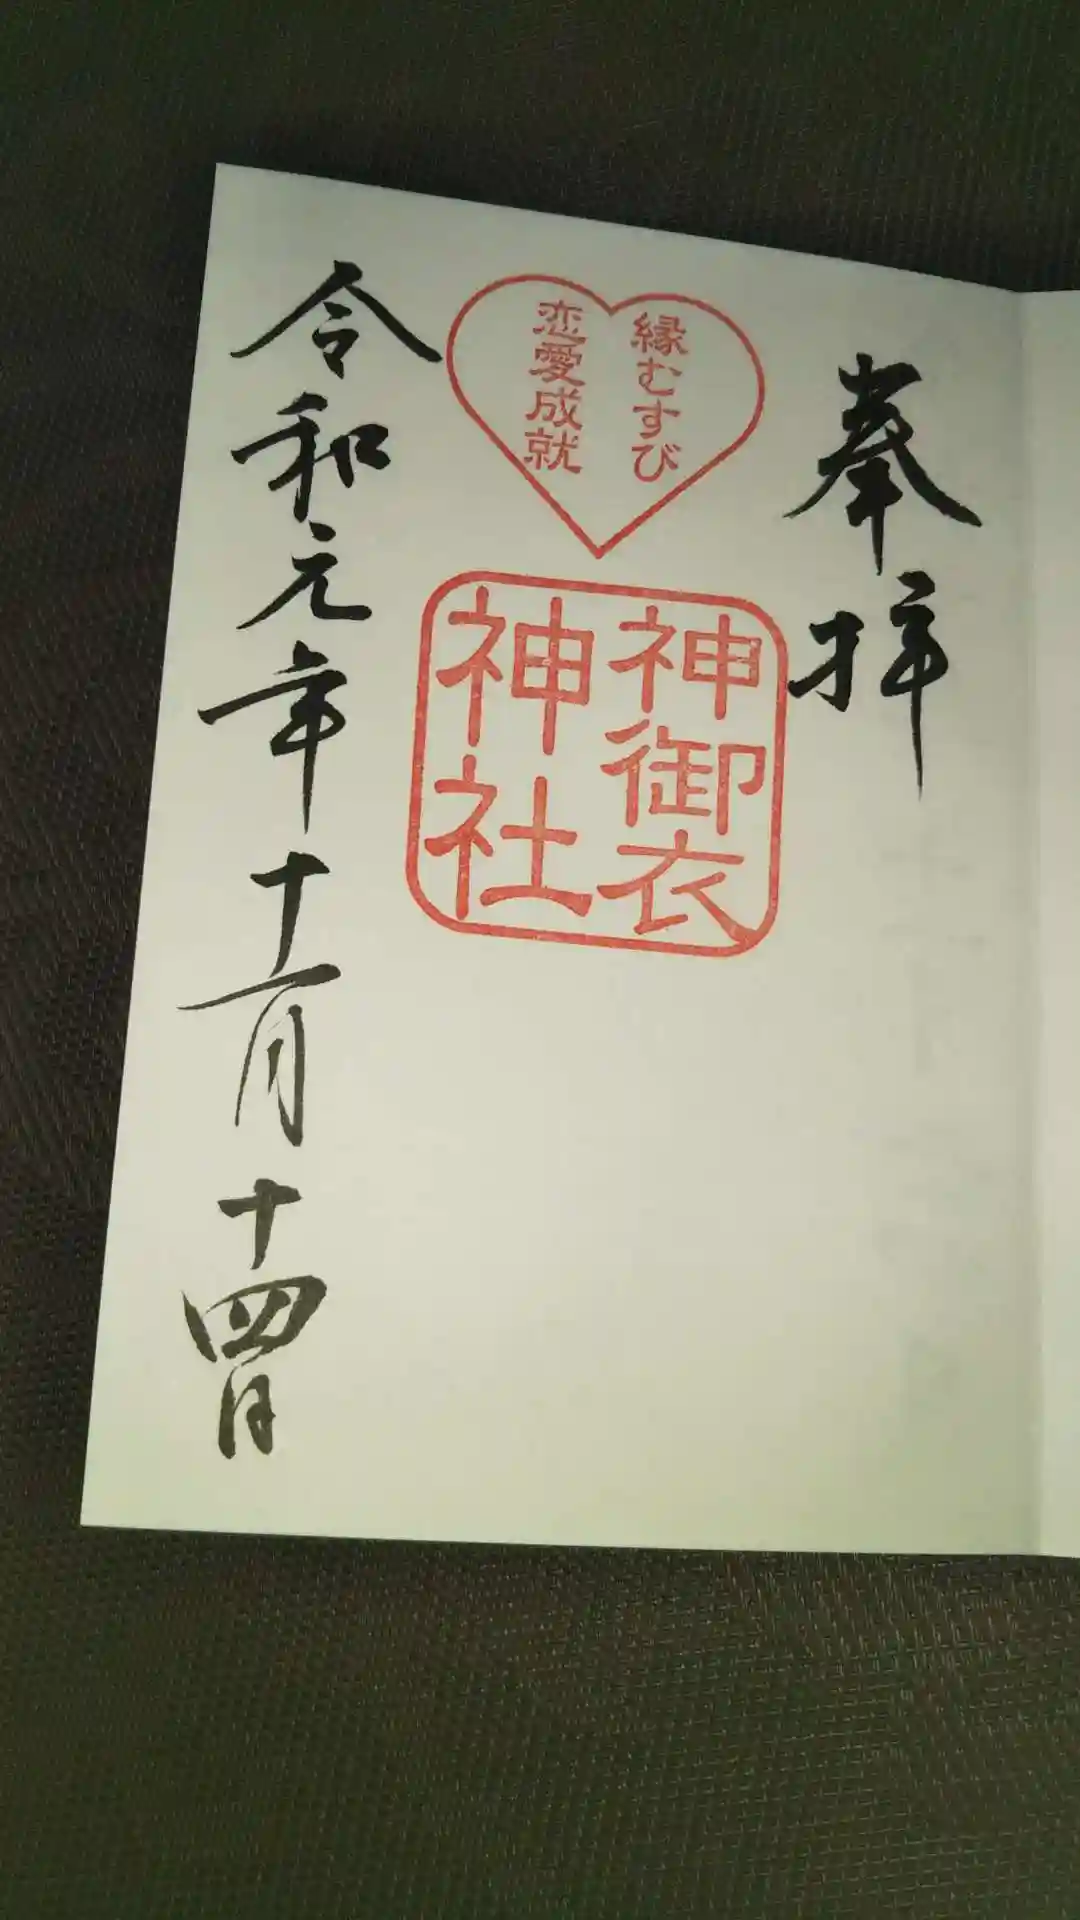 奉拝
縁むすび
恋愛成就
神御衣
神神社
令和元年十一月十四日